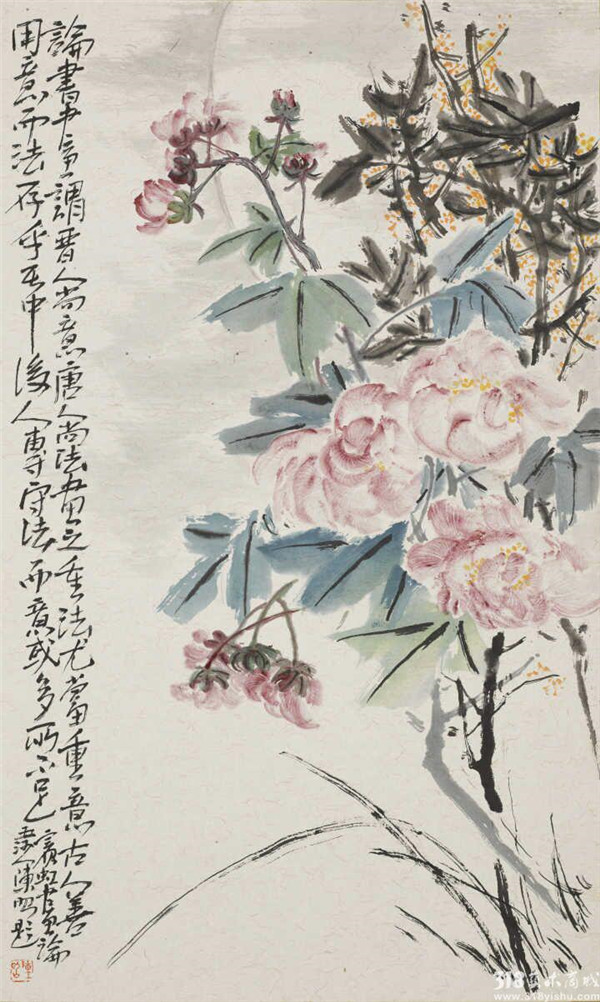 論書謂晉人尚意唐人尚法畫之重法尤當重意古人善
用意而法存乎其中後人專守法而意或多所不足
賓虹書畫論
陳明題
318艺术商城
www.318yishu.com